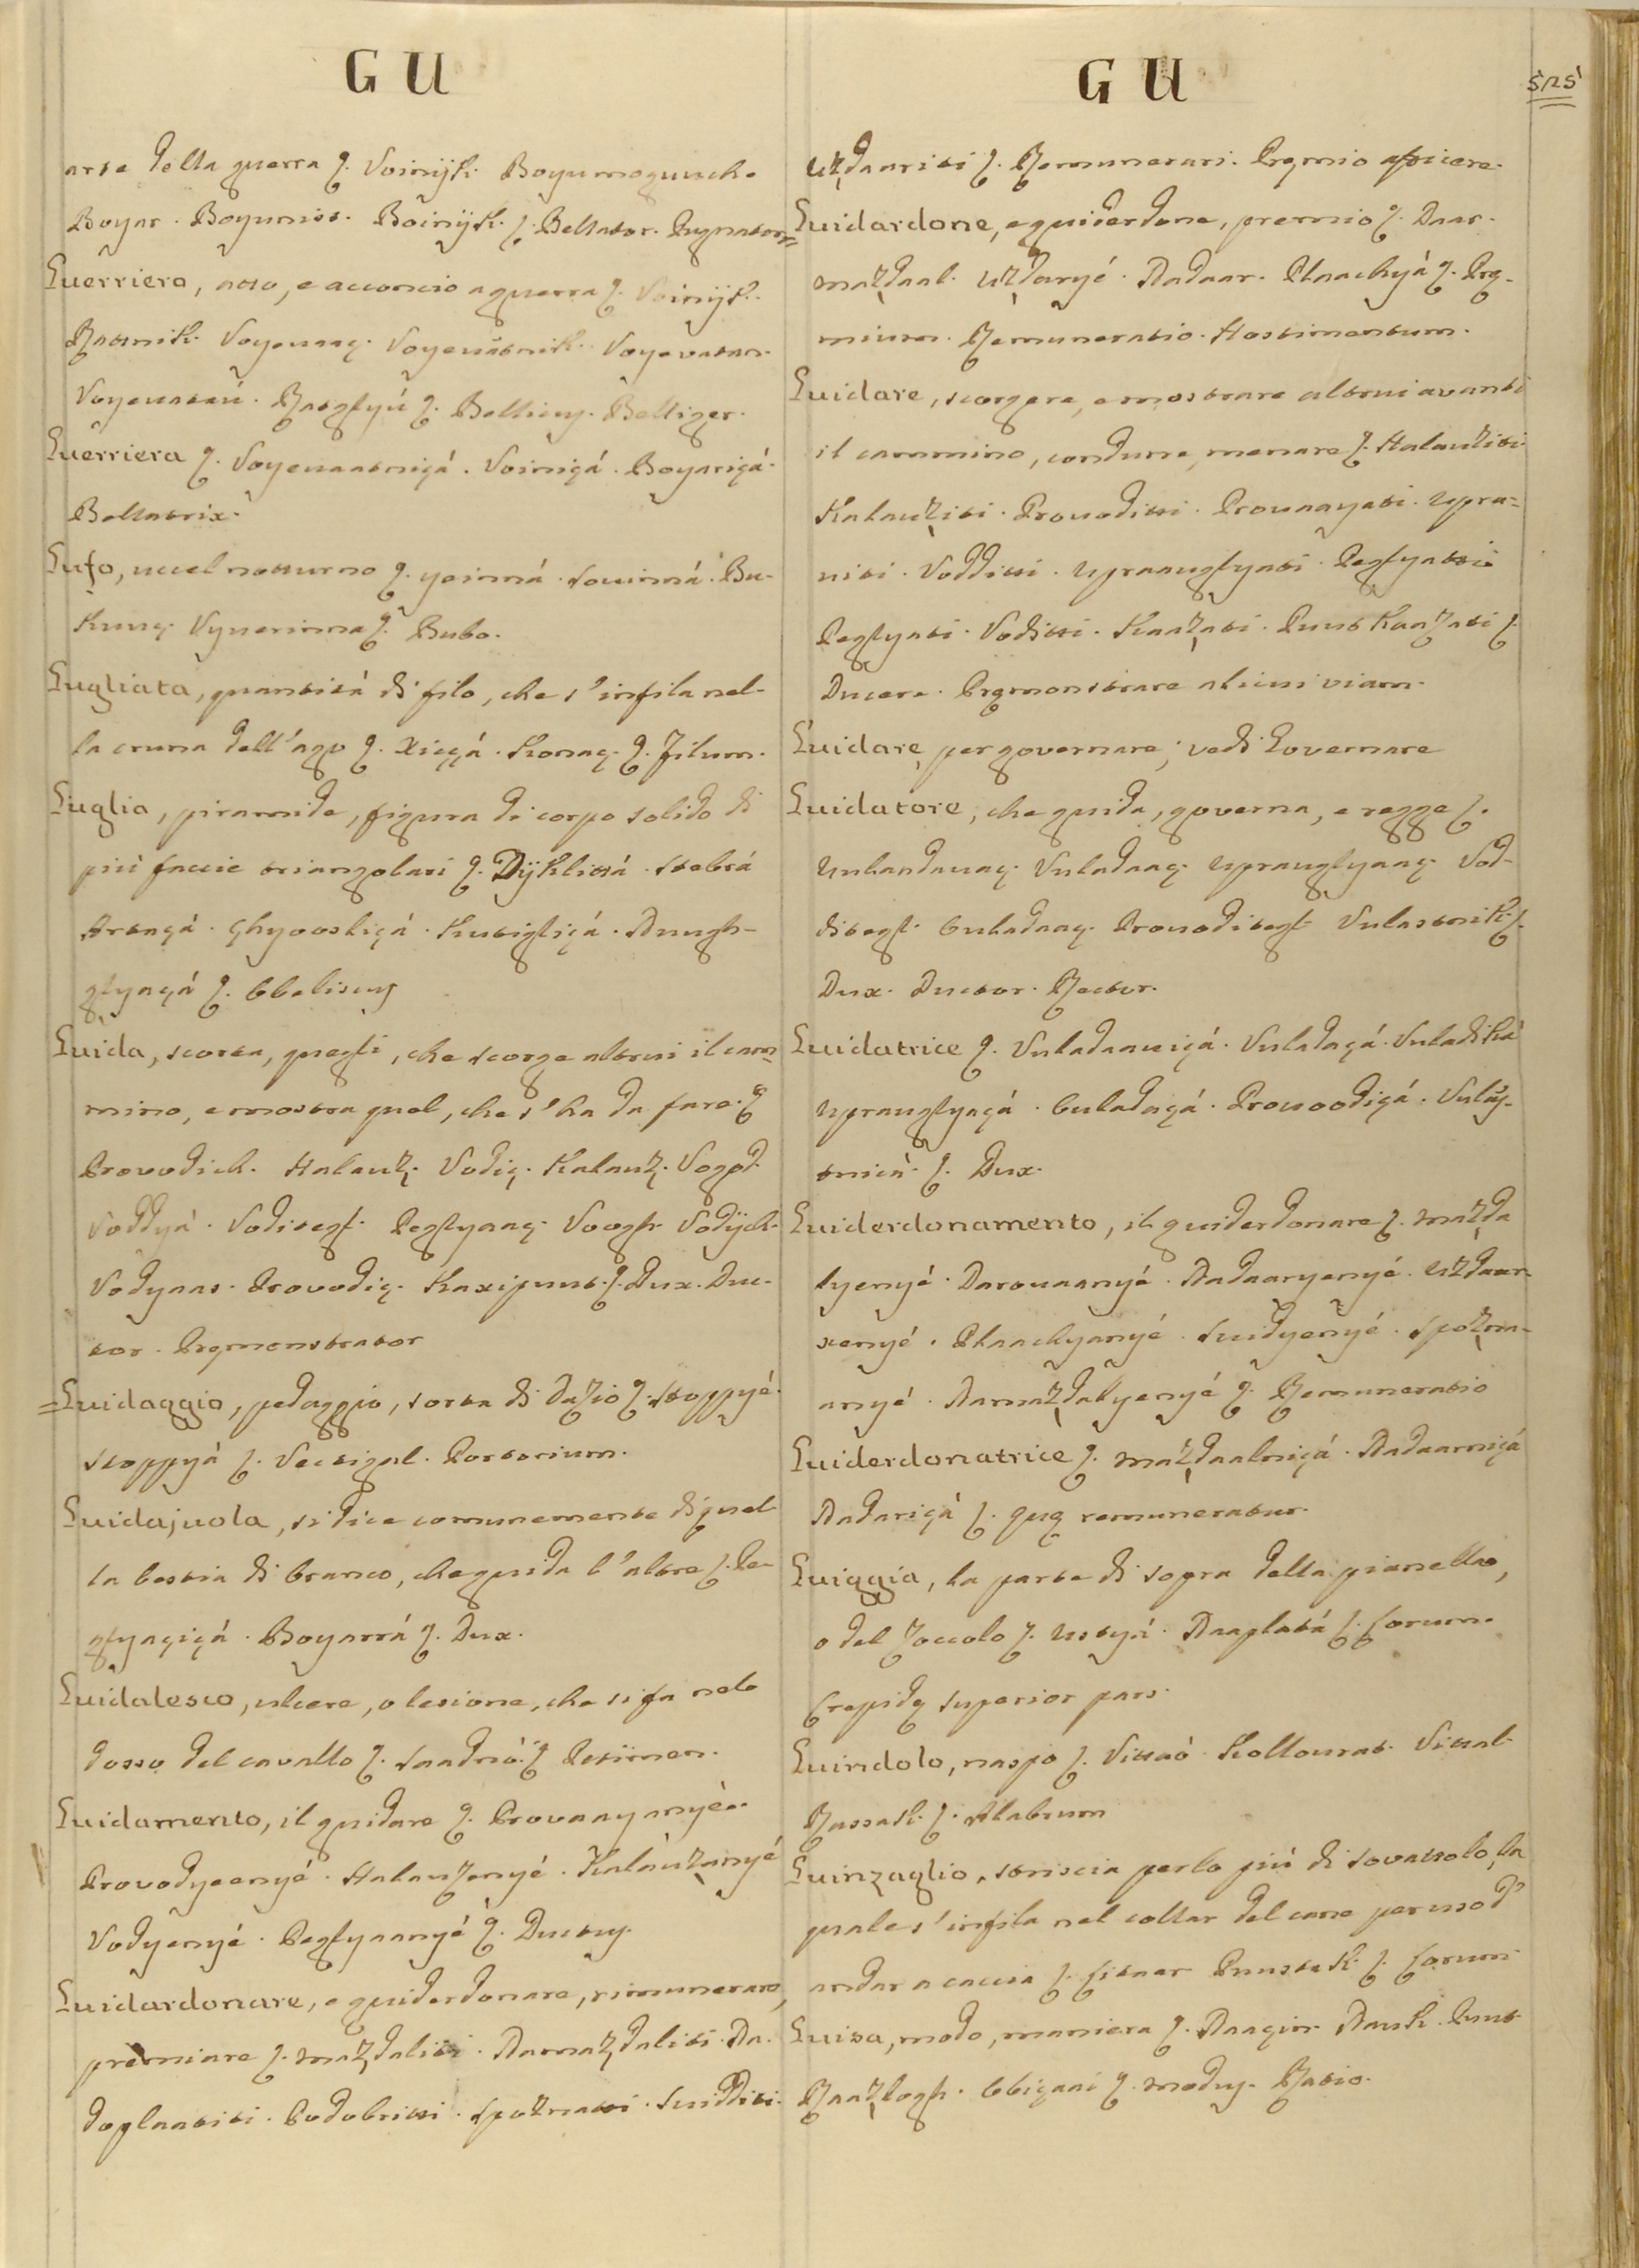 GU
arte della guerra ҫ. Voinijk. Boyumoguuch.
Boyar. Boyuniss. Boinijk. ҫ. Bellator. Pugnator.
Guerriero, atto, e acconcio a guerra ҫ. Voinijk.
Rattnik. Voyevaaç. Voyevatnik. Voyevatan.
Voyevatau. Ratglyú ҫ. Bellicus. Belliger.
Guerriera ҫ. Voyevaatniçá. Voiniçá. Boyariçá.
Bellatrix.
Gufo, uccel notturno ҫ. yeinná. Sovinná. Bu-
Kuuç. Vyverinna ҫ. Bubo.
Gugliata, quantità di filo, che s'infila nel-
la cruna dell'ago ҫ. Xiççá. Konaç. ҫ. Filum.
Guglia, piramide, figura di corpo solido di
più faccie triangolari ҫ. Dijklissá. Stobrá
Artaçá. Ghyoosliçá. Kutigliçá. Duugh-
glyaçá ҫ. Obeliscus
Guida, scorta, quegli, che scorge altrui il cam-
mino, e mostra quel, che s'ha da fare. ҫ
Provodich. Halauz. Vodiç. Kalauz. Vogod.
Voddyá. Voditegl. Peglyaaç. Voogh. Vodijch.
Vodyaas. Provodiç. Kaxiputt. ҫ. Dux. Duc-
tor. Pręmonstrator
=Guidaggio, pedaggio, sorta di dazio ҫ. Stoppyé.
Stoppyá ҫ. Vectigal. Portorium.
Guidajuola, si dice comunemente di quel
la bestia di branco, che guida l'altre ҫ. Pe-
glyaçiçá. Boyarrá ҫ. Dux.
Guidalesco, ulcere, o lesione, che si fa nel
dosso del cavallo ҫ. Saadnó. ҫ Petimen.
Guidamento, il guidare ҫ. Provaayanyé.
Provodyeenyé. Halauzenyé. Kalauzanyé
Vodyenyé. Peglyaanyé ҫ. Ductus.
Guidardonare, e guiderdonare, rimunerare,
premiare ҫ. mazdaliti. Namazdaliti. Na-
doplaatiti. Podobritti. Spoznatti. Suidditi.
GU
525
Uzdaariti ҫ. Remunerari. Pręmio afficere.
Guidardone, e guiderdone, premio ҫ. Daar.
mazdaal. Uzdaryé. Nadaar. Plaachyá ҫ. Prę-
mium. Remuneratio. Hostimentum.
Guidare, scorgere, e mostrare altrui avanti
il cammino, condurre, menare ҫ. Halauziti.
Kalauziti. Provoditti. Provaayati. Upra-
viti. Vodditti. Upraauglyati. Peglyatti.
Peglyati. Voditti. Kaazati. Puut Kaazati ҫ.
Ducere. Pręmonstrare alicui viam.
Guidare, per governare; vedi Governare
Guidatore, che guida, governa, e regge ҫ.
Vulaadauaç. Vuladaaç. Uprauglyaaç. Vod-
ditegl. Ouladaaç. Provoditegl. Vulastnik. ҫ
Dux. Ductor. Rector.
Guidatrice ҫ. Vuladaauiçá. Vuladaçá. Vuladiká
Uprauglyaçá. Ouladaçá. Provoodiçá. Vulás-
tnicá. ҫ. Dux.
Guiderdonamento, il guiderdonare ҫ. mazda
lyenyé. Darouaanyé. Nadaaryenyé. Uzdaar-
xenyé. Plaachyanyé. Suidyenyé. Spozna-
anyé. Namazdalyenyé ҫ. Remuneratio
Guiderdonatrice ҫ. mazdaalniçá. Nadaarniçá
Nadariçá ҫ. quę remuneratur.
Guiggia, la parte di sopra della pianella,
o del zoccolo ҫ. Ustyá. Naaplatá ҫ. Corum.
Crepidę superior pars.
Guindolo, naspo ҫ. Vittaó. Kollourat. Vittal.
Rassak. ҫ. Alabrum
Guinzaglio, striscia per lo più di sovattolo, la
quale s'infila nel collar del cane per uso d'
andar a caccia ҫ. Litaar. Puustak. ҫ. Lorum.
Guisa, modo, maniera ҫ. Naaçin. Nauk. Puut
Raazlogh. Obiçaai ҫ. modus. Ratio.